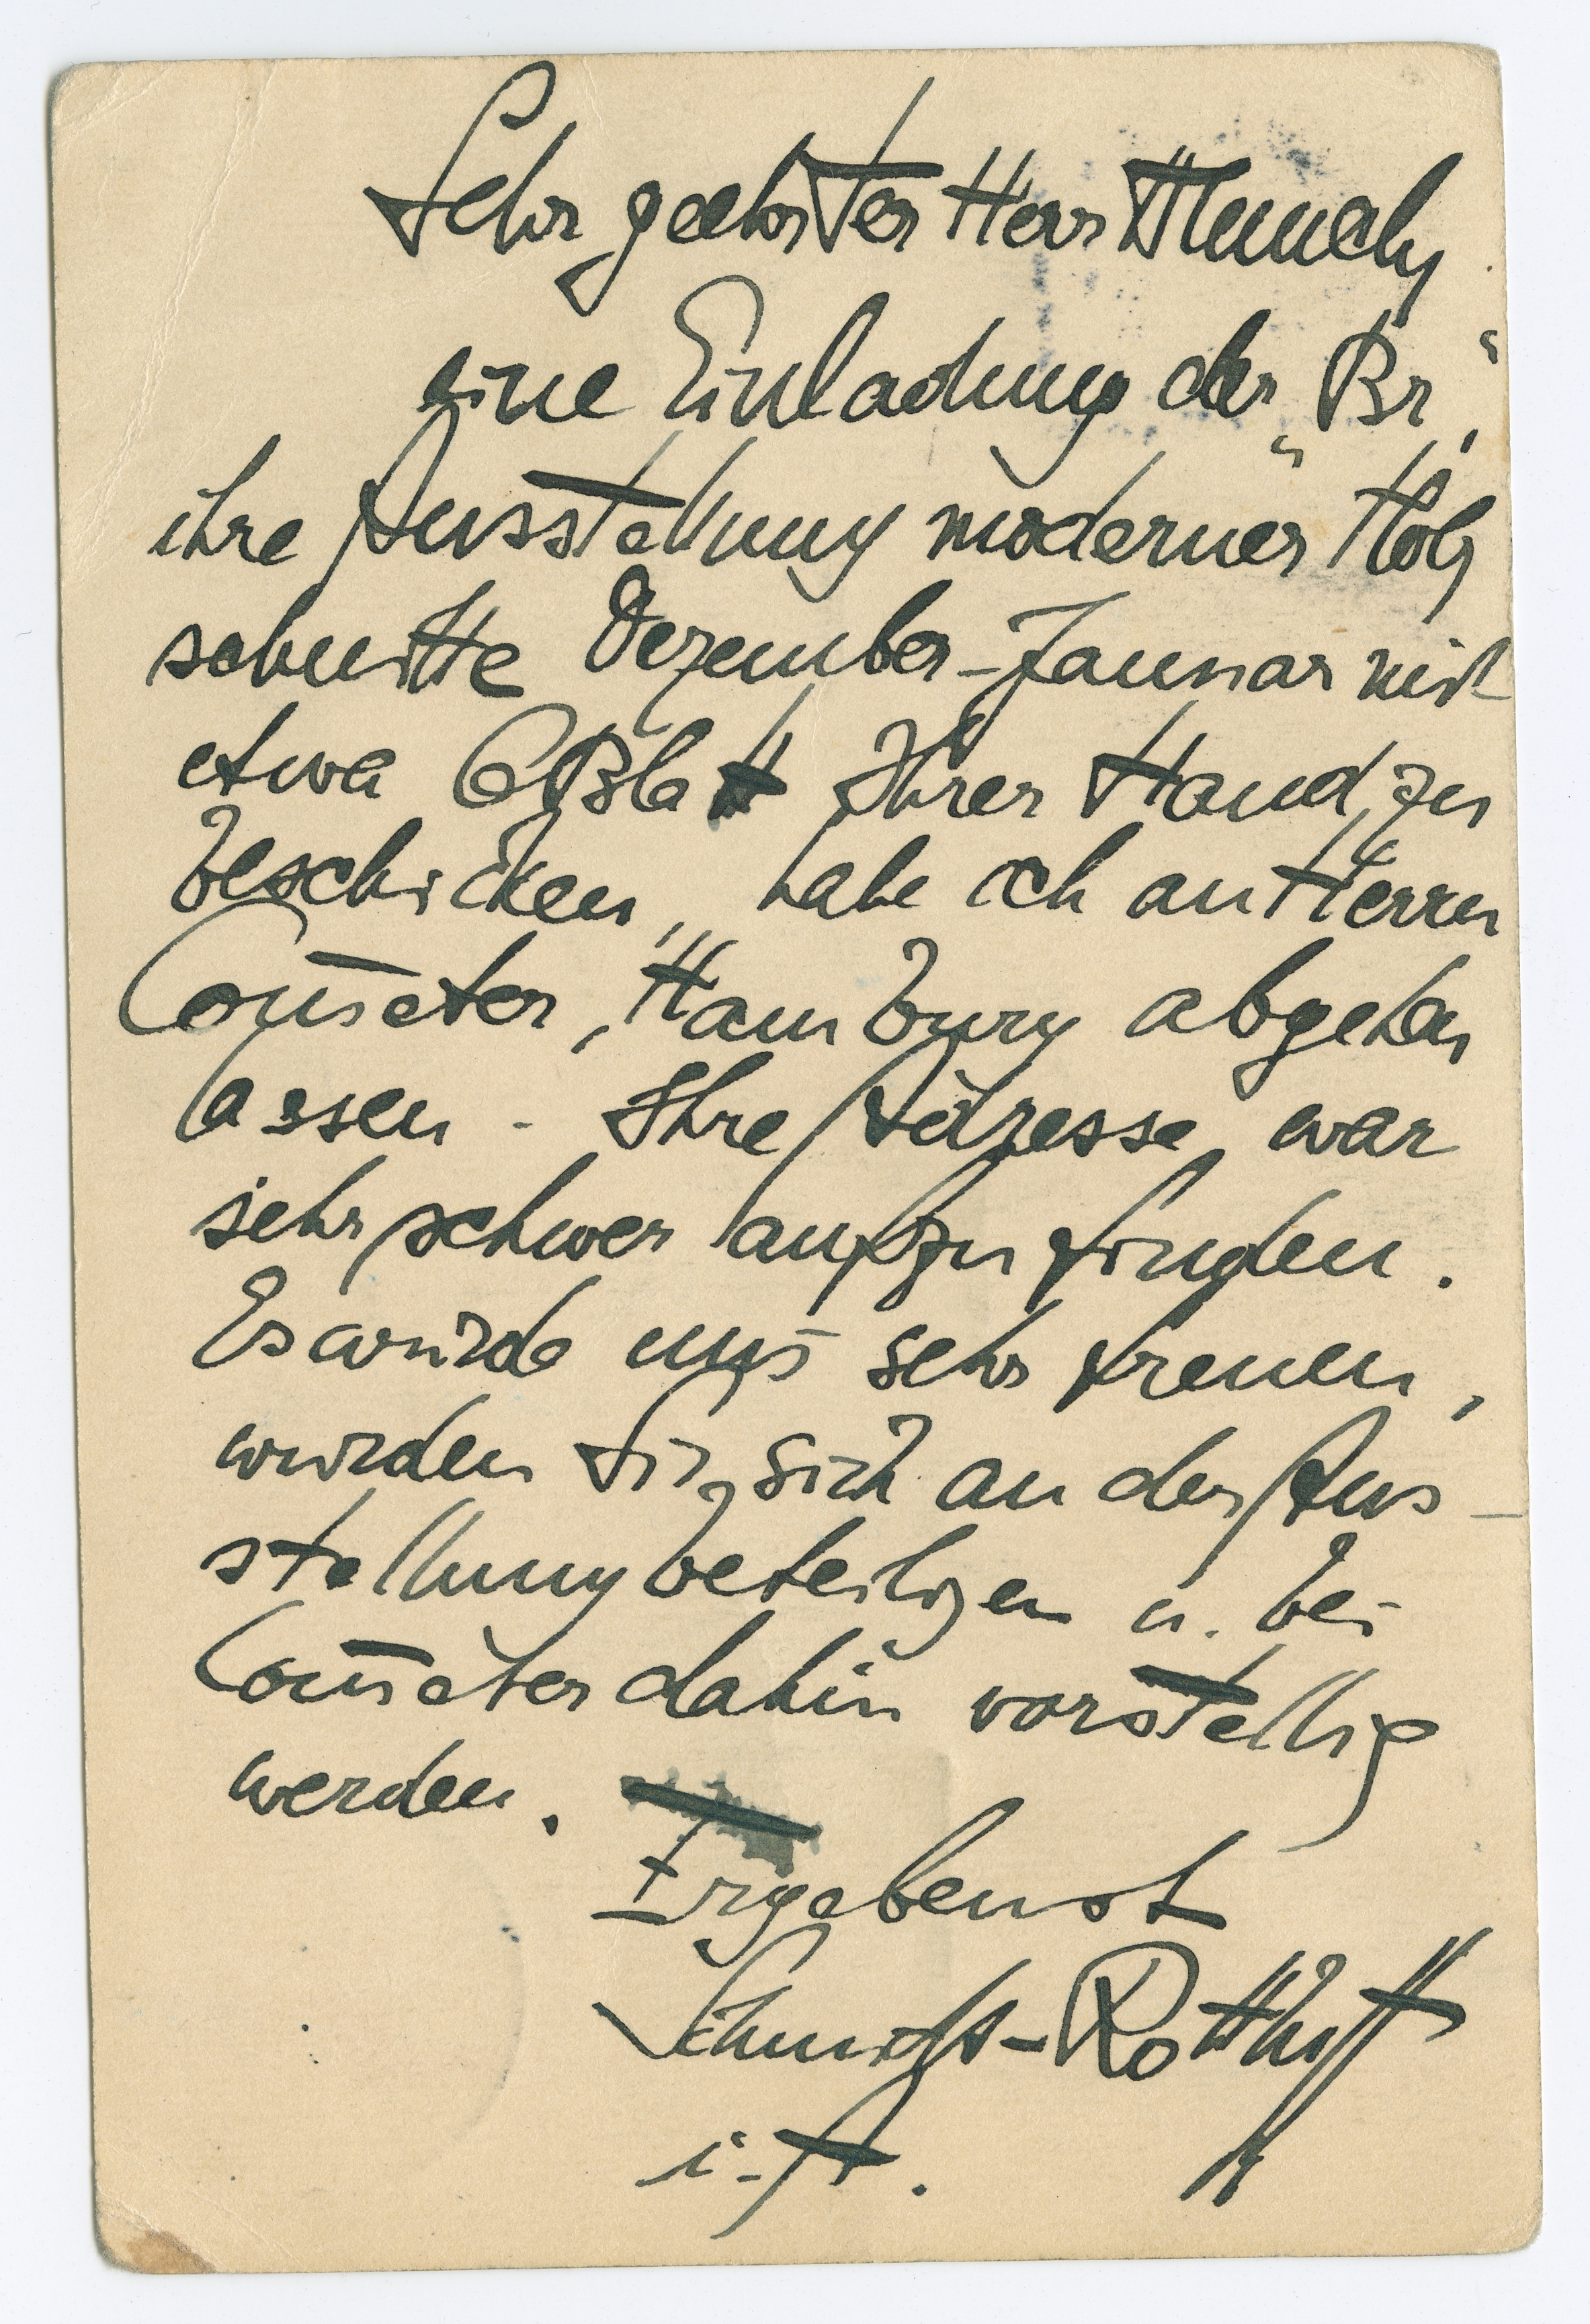 Sehr geehrter Herr Munch,
eine Einladung der „Br“,
ihre Ausstellung moderner Holz
schnitte Dezember-Januar mit
etwa 6 Blatt Ihrer Hand zu
beschicken, habe ich an Herrn
Com̅eter, Hamburg abgehen
lassen. Ihre Adresse war
sehr schwer aufzufinden.
Es würde uns sehr freuen,
würden Sie sich an der Aus-
stellung beteiligen u. bei
Com̅eter dahin vorstellig
werden.
Ergebenst
Schmidt-Rottluff
i. A.